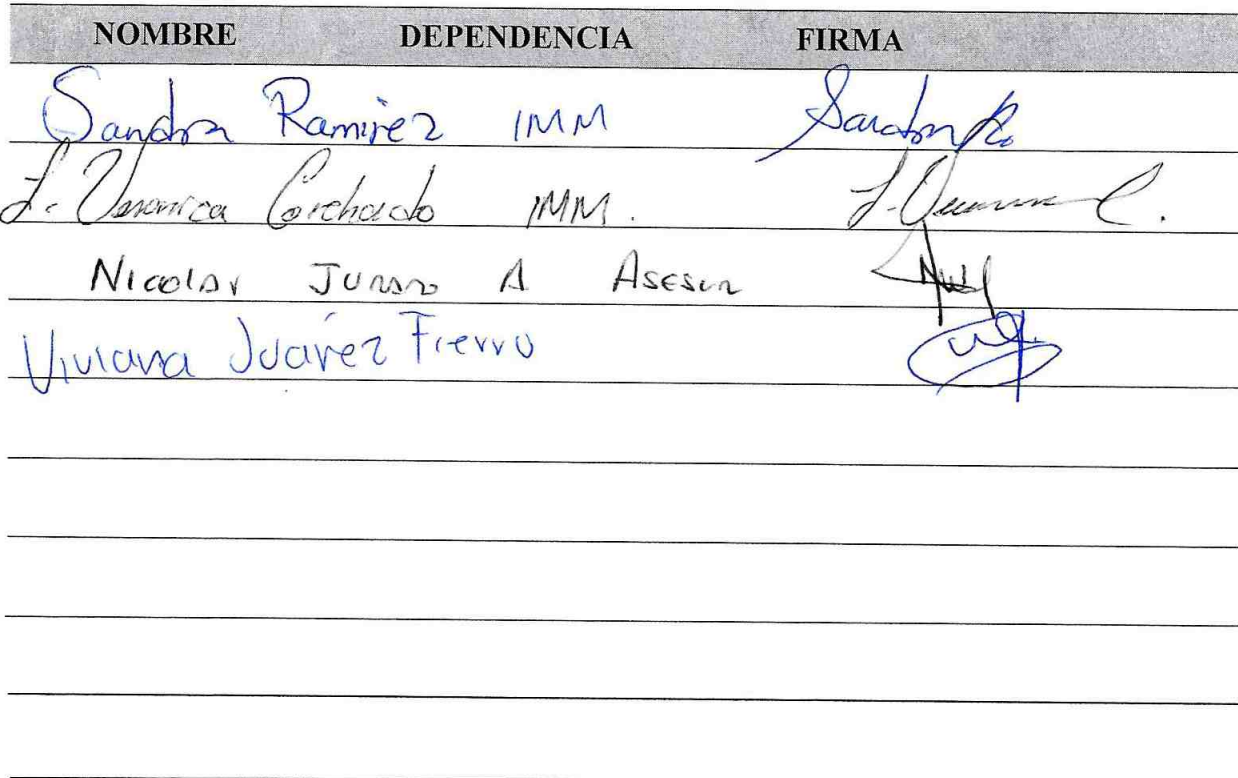 NOMBRE DEPENDENCIA FIRMA
Sandra Ramirez IMM Sandra R.
L. Veronica Corchado IMM. L. Veronica C.
Nicolas A Asesor
Viviana Juárez Fierro